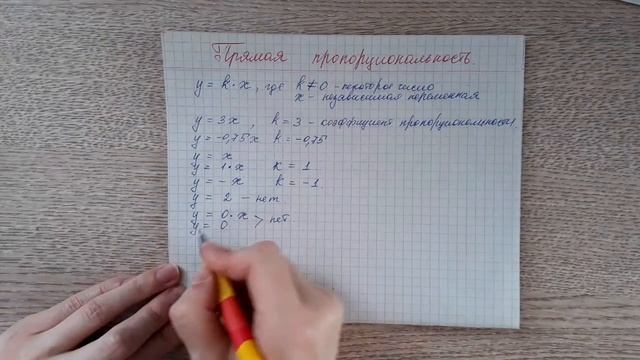 Прямая пропорциональность.
y = k · x, где k ≠ 0 - некоторое число
x - независимая переменная
y = 3x, k = 3 - коэффициент пропорциональности
y = -0,75x k = -0,75
y = x
y = 1 · x k = 1
y = - x k = -1.
y = 2 - нет
y = 0 · x > нет.
y = 0